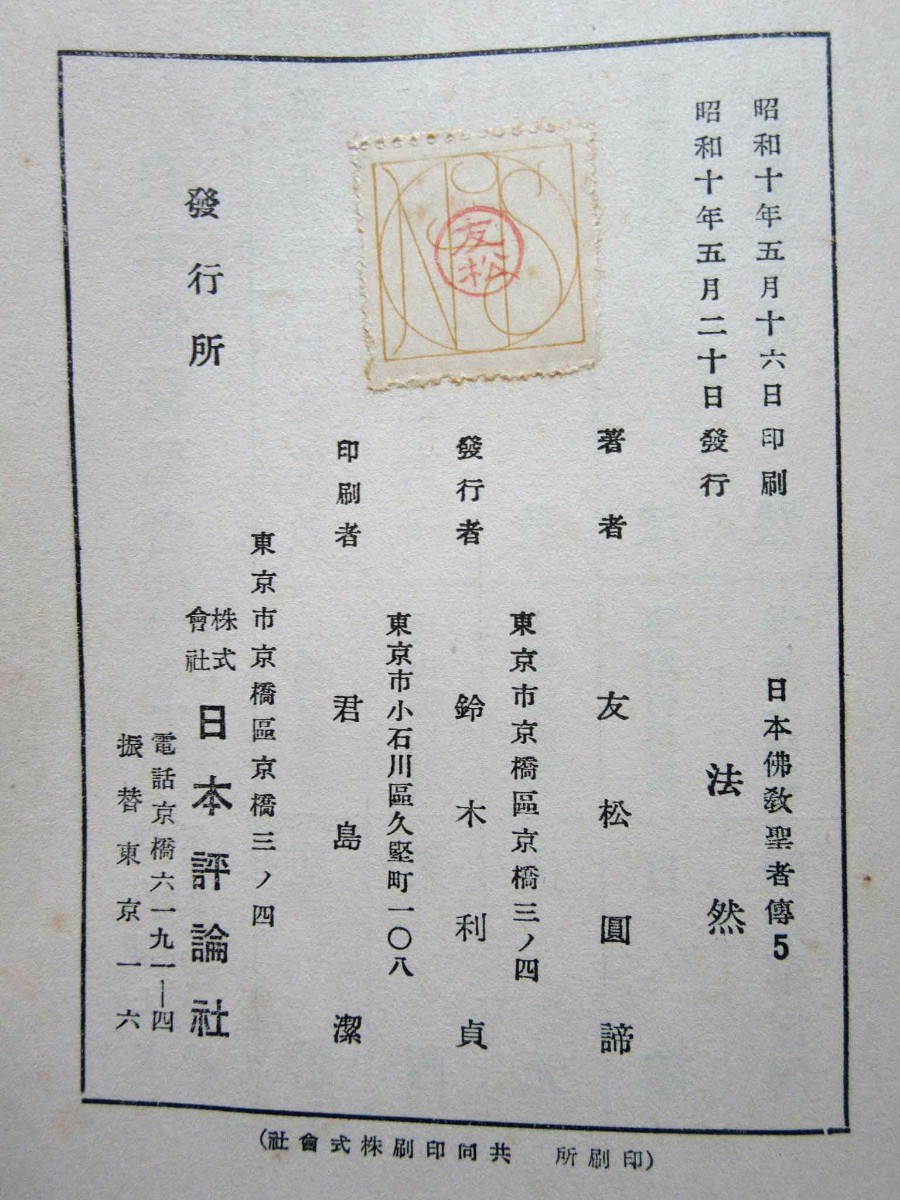 昭和十年五月十六日印刷
昭和十年五月二十日發行
日本佛敎聖者傳5
法然
著者 友松圓諦
東京市京橋區京橋三ノ四
發行者 鈴木利貞
東京市小石川區久堅町一〇八
印刷者 君島潔
東京市京橋區京橋三ノ四
發行所 株式會社 日本評論社
電話京橋六一九一―四
振替東京一六
友松
NS
(印刷所 共同印刷株式會社)